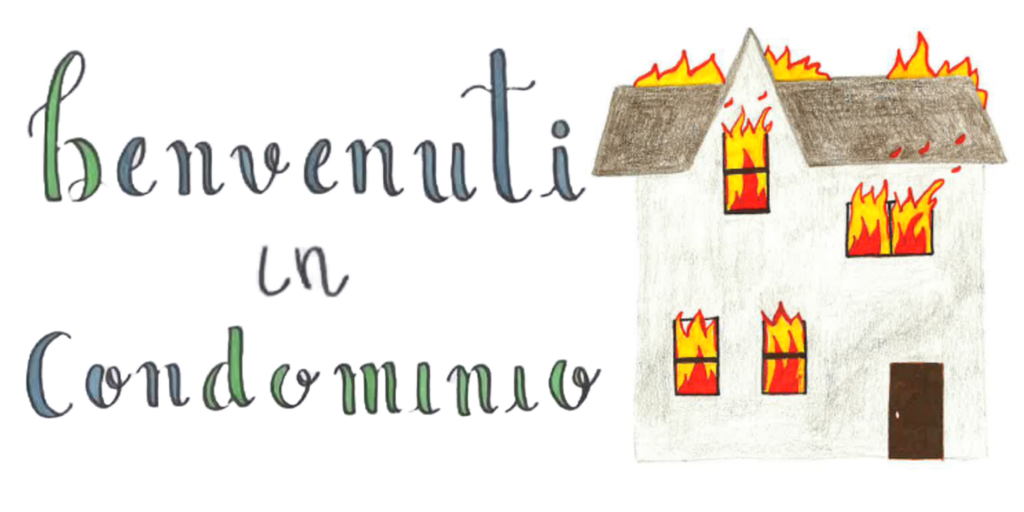 benvenuti
in
Condominio